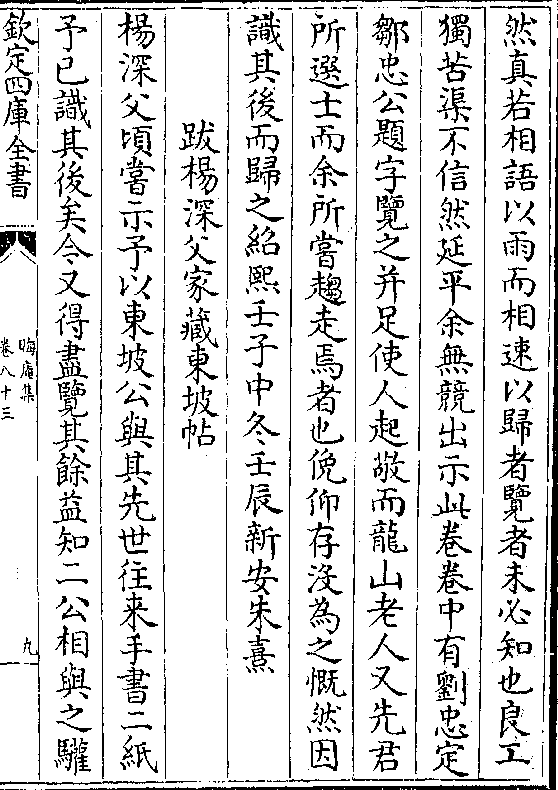 然真若相語以雨而相速以歸者覽者未必知也良工
獨苦渠不信然延平余無競出示此卷卷中有劉忠定
鄒忠公題字覽之并足使人起敬而龍山老人又先君
所選士而余所嘗趨走焉者也俛仰存没為之慨然因
識其後而歸之紹熙壬子中冬壬辰新安朱熹
跋楊深父家藏東坡帖
楊深父頃嘗示予以東坡公與其先世往来手書二紙
予已識其後矣今又得盡覽其餘益知二公相與之驩
欽定四庫全書
晦庵集
卷八十三
九